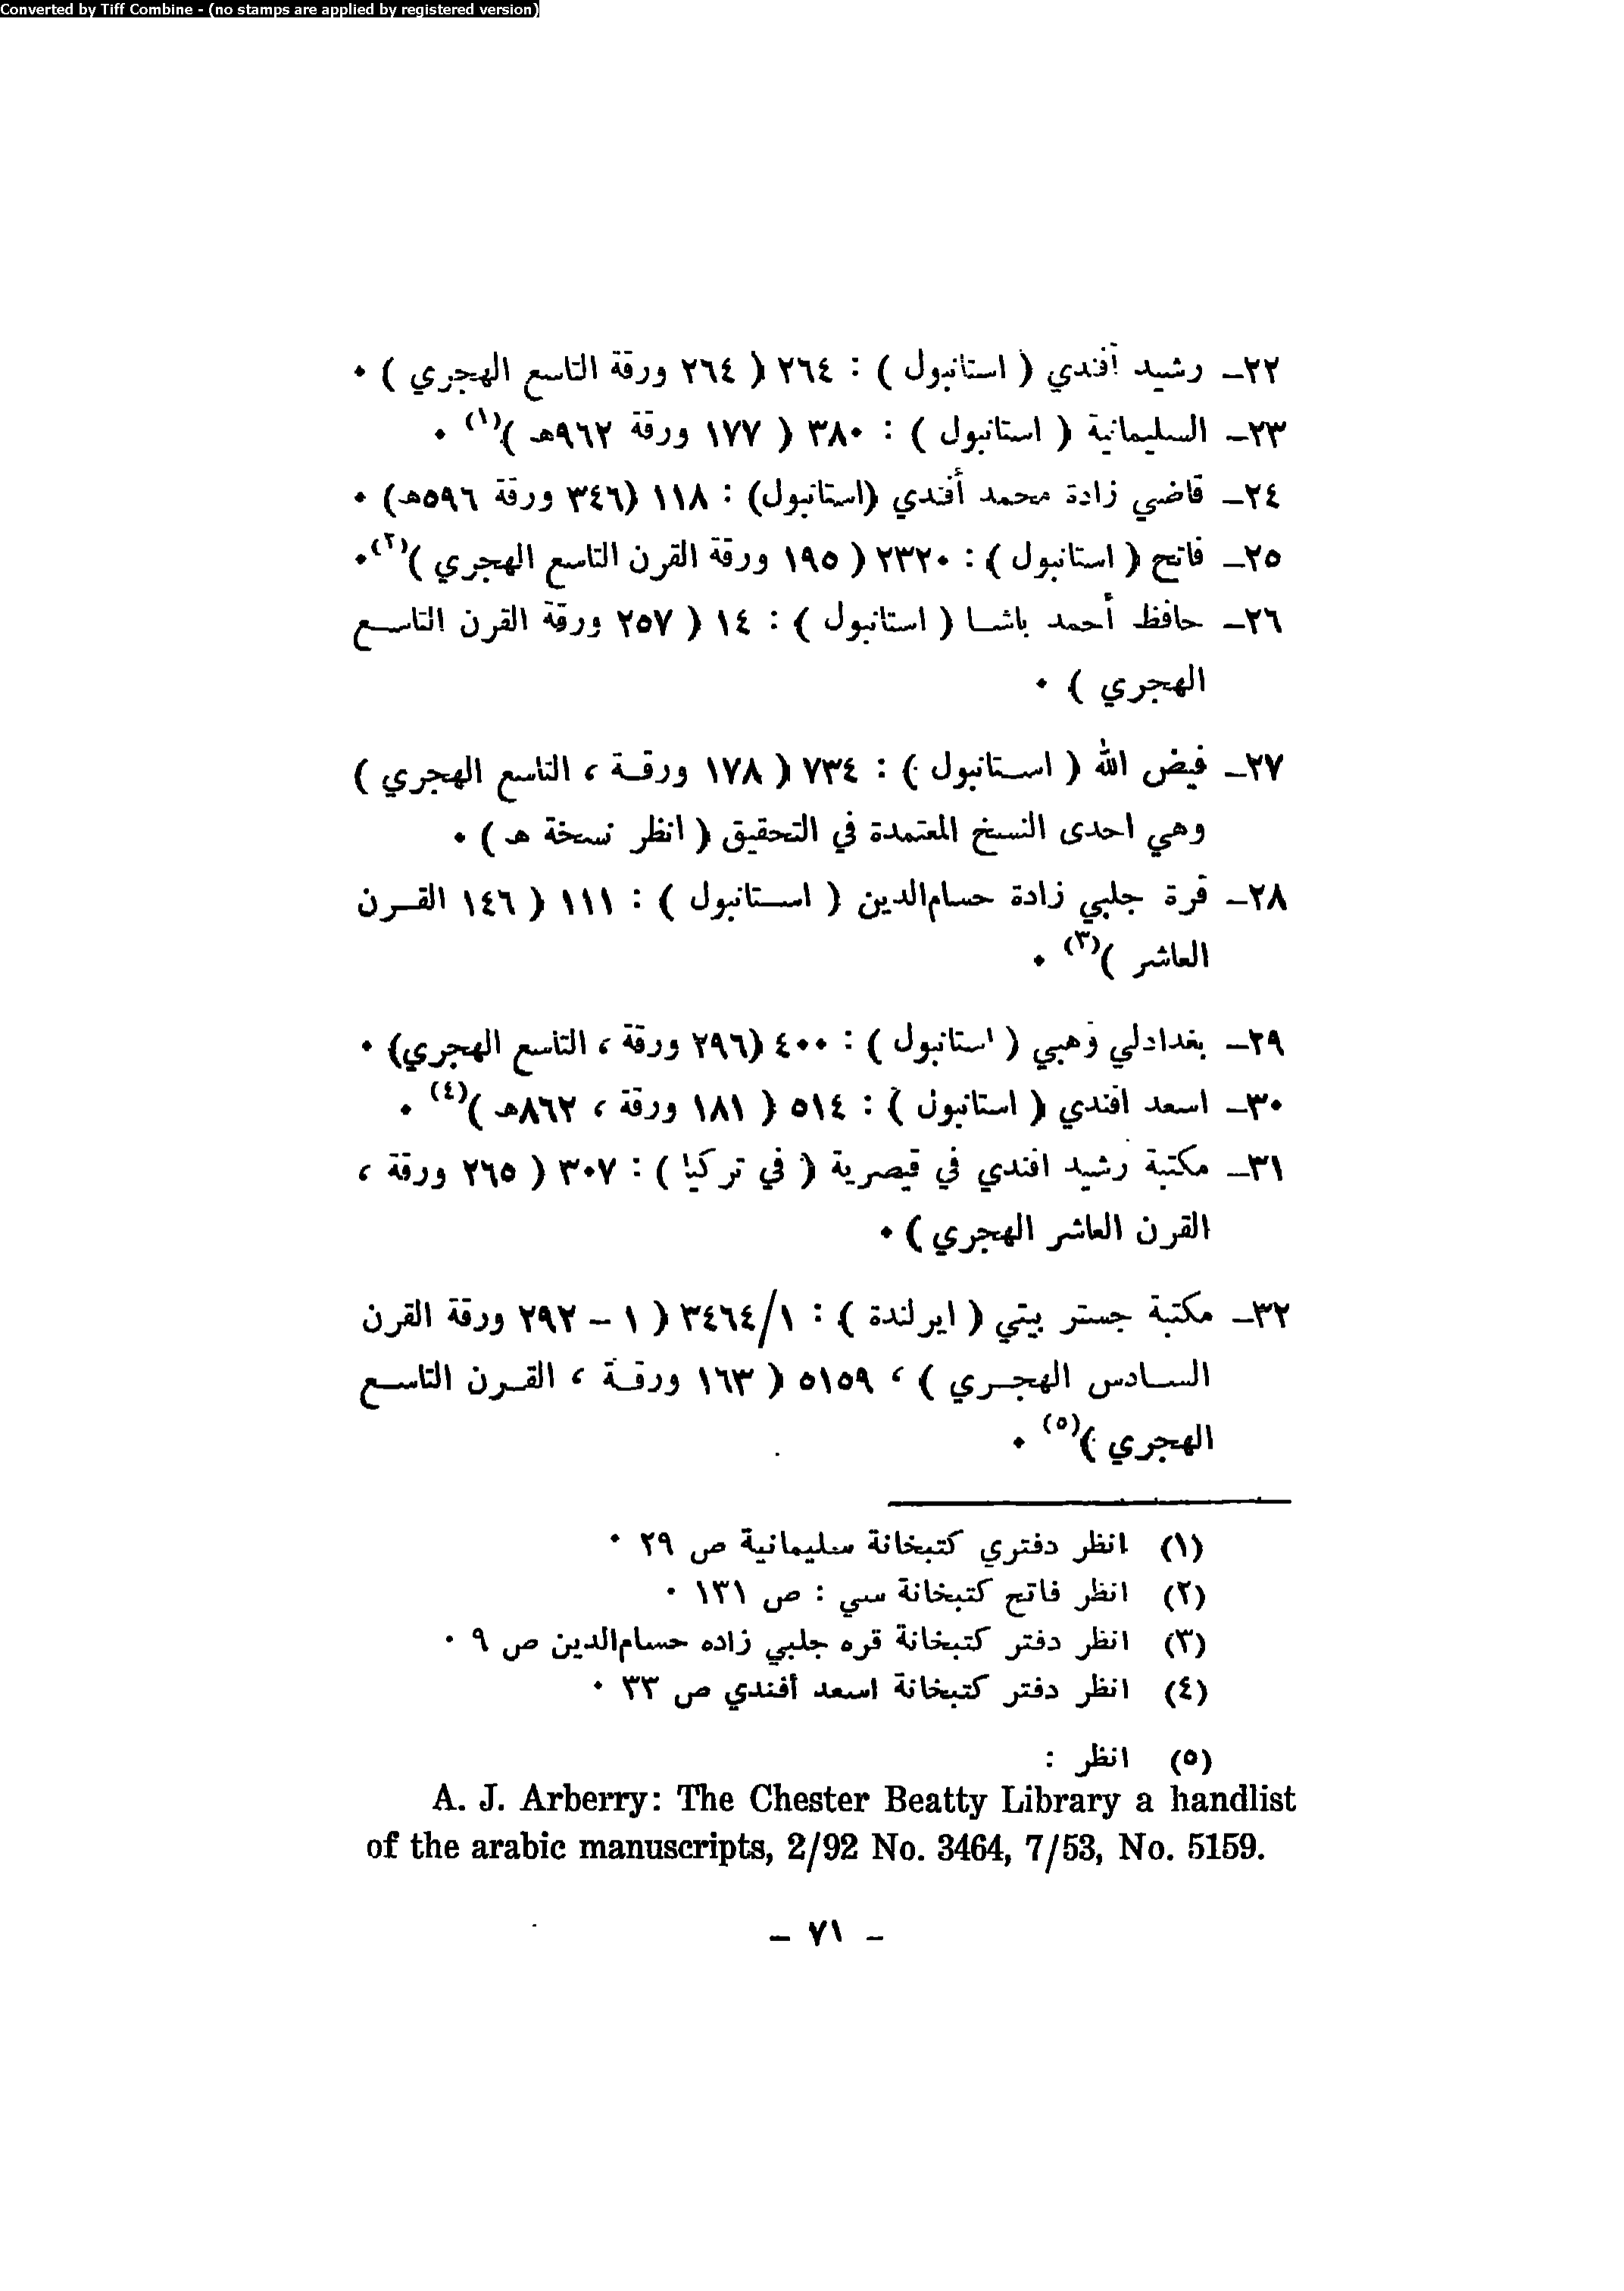 Converted by Tiff Combine - (no stamps are applied by registered version)
٢٢ــ رشيد أفندي ( استانبول ) : ٢٦٤ ( ٢٦٤ ورقة التاسع الهجري ) ٠
٢٣ــ السليمانية ( استانبول ) : ٣٨٠ ( ١٧٧ ورقة ٩٦٢هـ )(١) ٠
٢٤ــ قاضي زادة محمد أفندي (استانبول) : ١١٨ (٣٤٦ ورقة ٥٩٦هـ) ٠
٢٥ــ فاتح ( استانبول ) : ٢٣٢٠ ( ١٩٥ ورقة القرن التاسع الهجري )(٢)٠
٢٦ــ حافظ أحمد باشا ( استانبول ) : ١٤ ( ٢٥٧ ورقة القرن التاسع
الهجري ) ٠
٢٧ــ فيض الله ( استانبول ) : ٧٣٤ ( ١٧٨ ورقة ، التاسع الهجري )
وهي احدى النسخ المعتمدة في التحقيق ( انظر نسخة هـ ) ٠
٢٨ــ قرة جلبي زادة حسام‌الدين ( استانبول ) : ١١١ ( ١٤٦ القرن
العاشر )(٣) ٠
٢٩ــ بغدادلي وهبي ( استانبول ) : ٤٠٠ (٢٩٦ ورقة ، التاسع الهجري) ٠
٣٠ــ اسعد افندي ( استانبول ) : ٥١٤ ( ١٨١ ورقة ، ٨٦٢هـ )(٤) ٠
٣١ــ مكتبة رشيد افندي في قيصرية ( في تركيا ) : ٣٠٧ ( ٢٦٥ ورقة ،
القرن العاشر الهجري ) ٠
٣٢ــ مكتبة جستر بيتي ( ايرلندة ) : ٣٤٦٤/١ ( ١ – ٢٩٢ ورقة القرن
السادس الهجري ) ، ٥١٥٩ ( ١٦٣ ورقة ، القرن التاسع
الهجري )(٥) ٠
(١) انظر دفتري كتبخانة سليمانية ص ٢٩ ٠
(٢) انظر فاتح كتبخانة سي : ص ١٣١ ٠
(٣) انظر دفتر كتبخانة قره جلبي زاده حسام‌الدين ص ٩ ٠
(٤) انظر دفتر كتبخانة اسعد أفندي ص ٣٣ ٠
(٥) انظر :
A. J. Arberry: The Chester Beatty Library a handlist
of the arabic manuscripts, 2/92 No. 3464, 7/53, No. 5159.
– ٧١ –